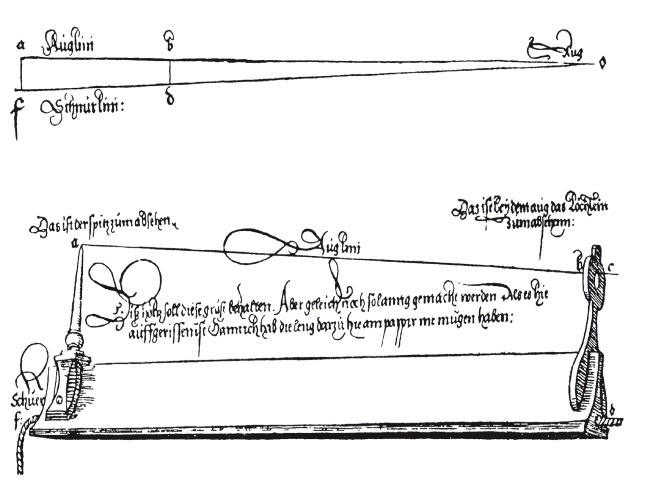 a Auglini b Aug o
f Schnurlini: d
Das ist der spitz zum absehen
Das ist bey dem aug das Löchlein
zum absehenn:
a Auglini b c
Ditz holtz soll diese gröss behalten. Aber geleich noch so lanng gemacht werden Als es hie
auffgerissen ist Dann ich hab die leng darzu hie am pappir nie mügen haben:
Schnier
f: d